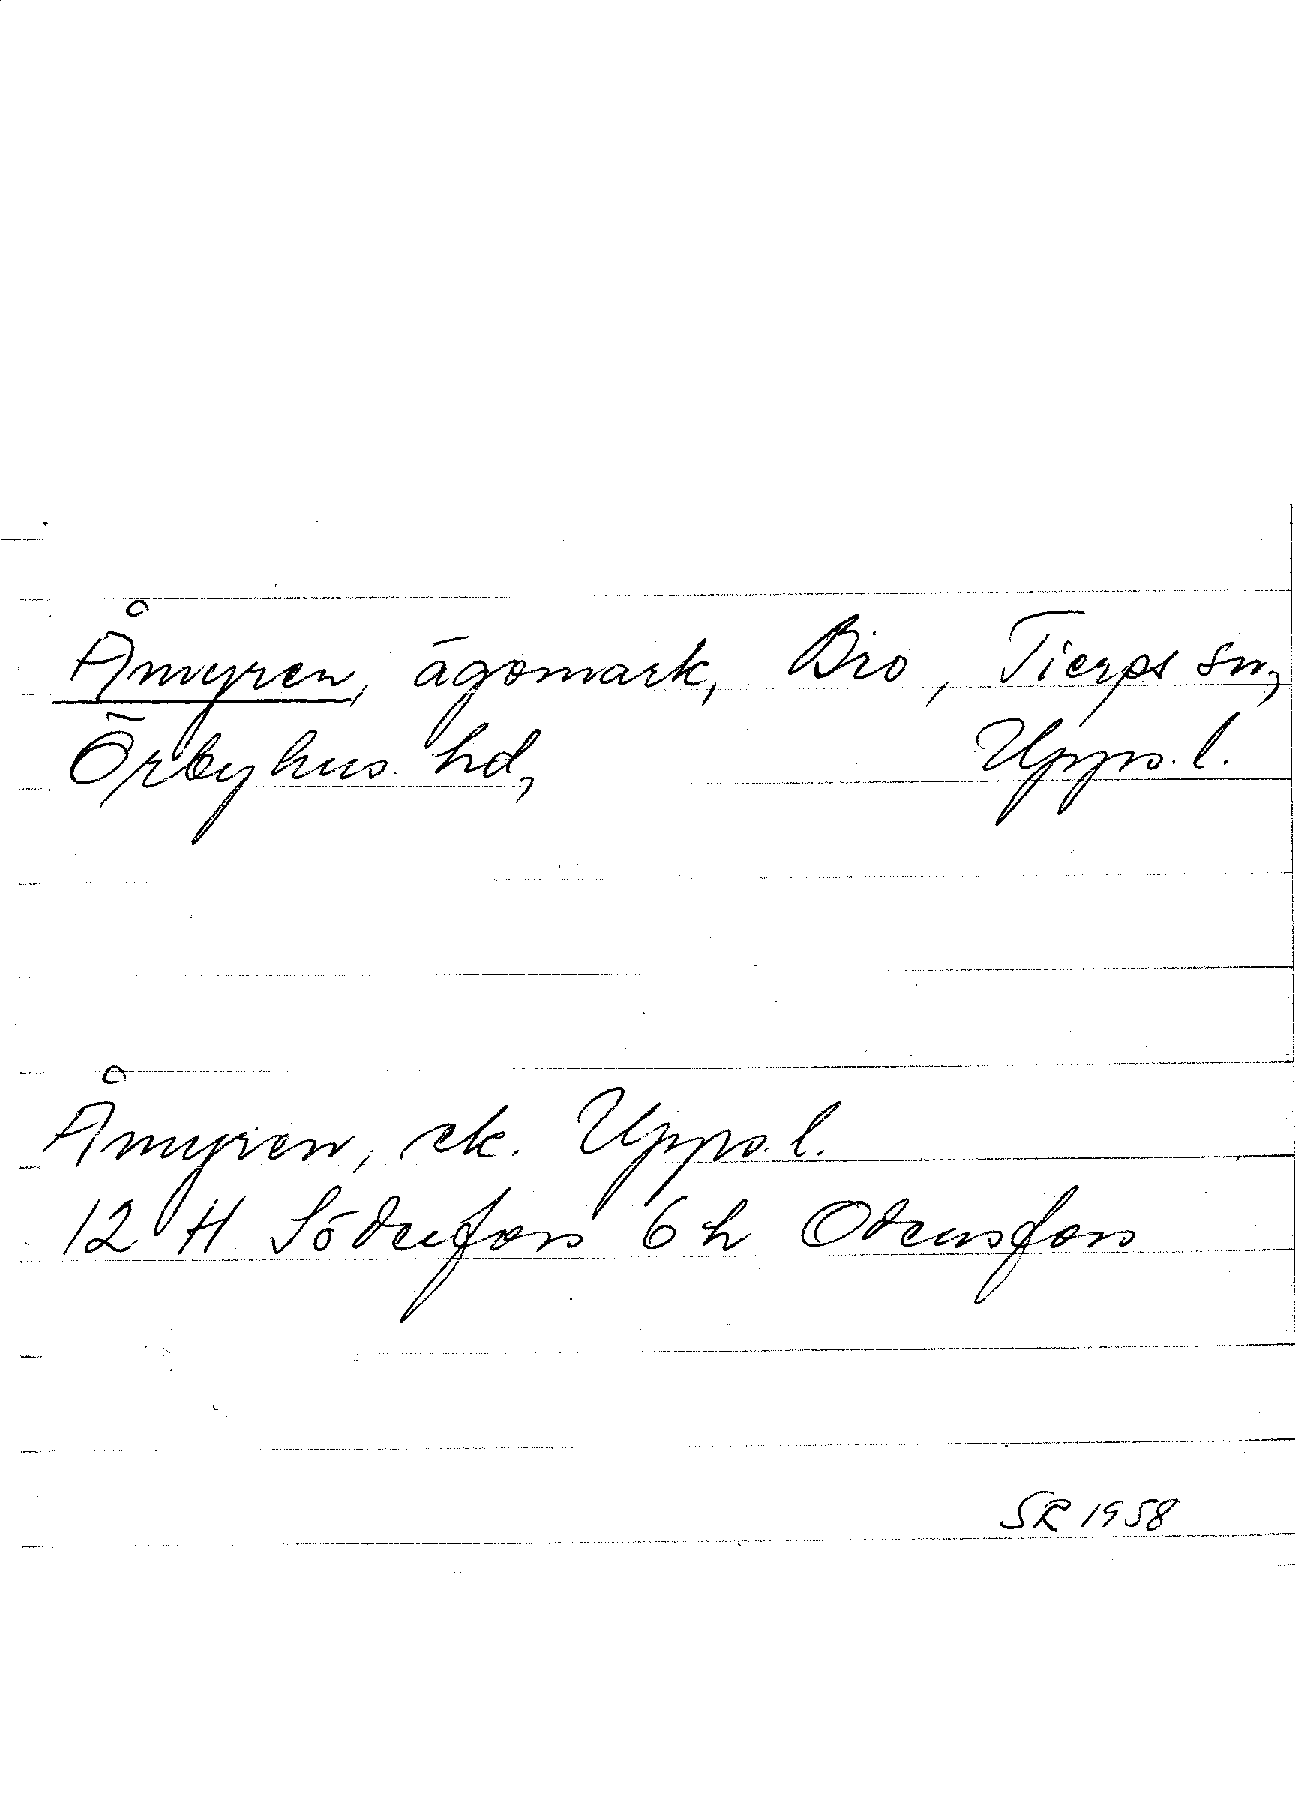 Åmyren, ägomark, Bro, Tierps sn,
Örbyhus hd, Upps. l.
Åmyren, ek. Upps. l.
12 H Söderfors 6 h Odensfors
SR 1958